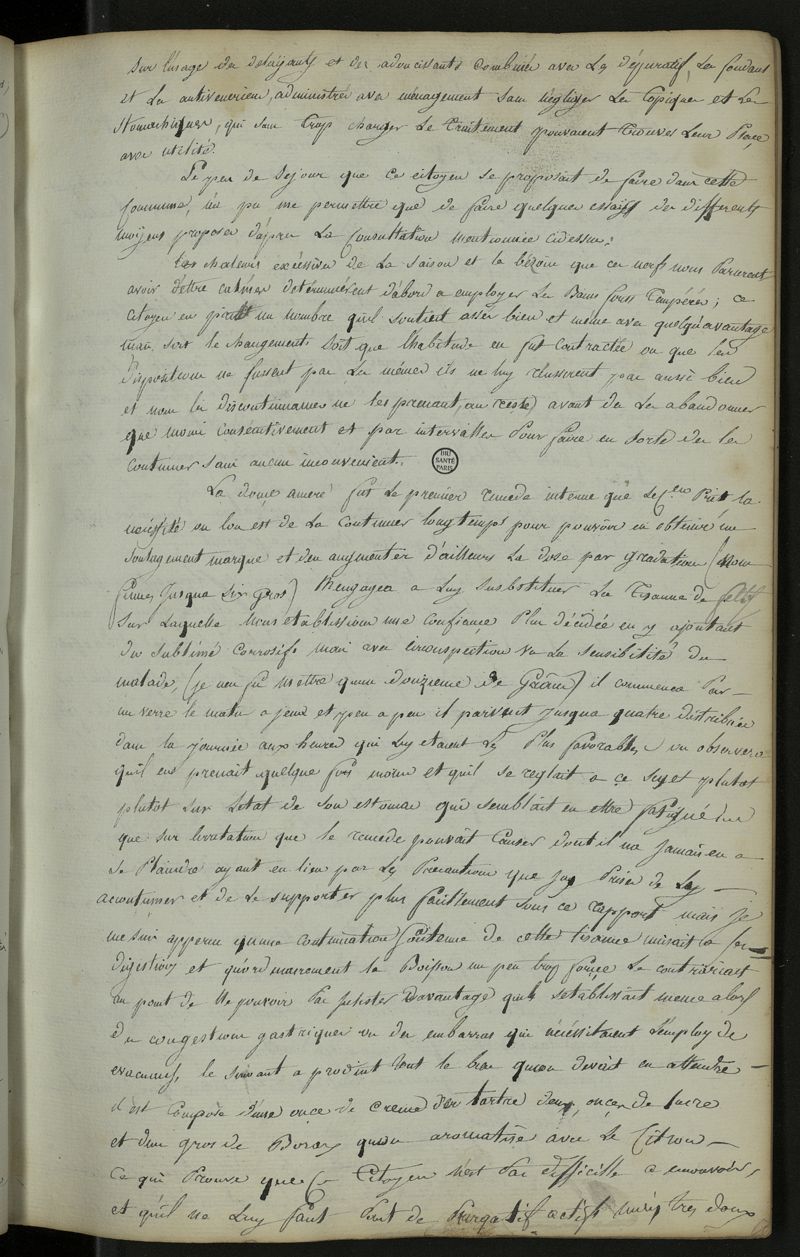 Sur l'usage des delayants et des adoucissants combinés avec les dépuratifs, les fondants
et les antiveneriens, administrés avec ménagement sans negliger les topiques et les
stomachiques, qui sans trop charger le traitement pouvaient trouver leur place
avec utilité.
Le peu de Sejour que ce citoyen se proposait de faire dans cette
commune, n'a pu me permettre que de faire quelques essaits des differents
moÿens proposés d'apres la Consultation mentionnée cidessus.
les chaleurs excéssives de la saison et le bésoin que ces nerfs nous Parurent
avoir d'êttre calmés determinérent d'abord a employer les Bains Tempérés; ce
Citoÿen en prit un nombre qu'il soutient assés bien et meme avec quelqu'avantage
mais soit le changement soit que l'habitude en fut contractée ou que les
dispositions ne fussent pas les mémes ils ne luy réussirent pas aussi bien
et nous les discontinuames ne les prenant, au reste, avant de les abandonner
que moins consécutivement et par intervalles Pour faire en sorte de les
continuer sans aucun inconvenient.
BIU SANTÉ PARIS
La douce amere fut le premier remede interne que le Cen Prit la
nécéssité ou l'on est de la continuer longtemps pour pouvoir en obtenir un
soulagement marqué et d'en augmenter d'ailleurs la dose par gradation (nous
jusqua six gros) m'engagea a luy substituer la Tisanne de feltz
sur laquelle nous etablissions une confiance Plus décidée en y ajoutant
du sublimé corrosifs mais avec circonspection vu la sensibilité du
malade, (je n'en fis mettre qu'un douzieme de Grain) il commenca Par
un verre le matin a jeun et peu a peu il parvint jusqua quatre distribués
dans la journée aux heures qui luy etaient les Plus favorables, on observera
qu'il en prenait quelque fois moins et qu'il se reglait a ce sujet plutot
plutot sur l'etat de son estomac qui semblait en ettre fatigué
que sur l'irritation que le remede pouvait causer dont il n'a jamais eu a
se Plaindre ayant eu lieu par les Precautions que j'ay Prises de l'y
acoutumer et de le supporter plus facillement sous ce rapport mais je
me suis apperçu qu'une continuation soutenue de cette tisanne nuisait a ses
digestions et qu'ordinairement la Boisson un peu trop forçée le contrariait
au point de ne pouvoir Pas subsister davantage qu'il s'etablissait meme alors
des congestions gastriques ou des embarras qui nécéssitaient l'employ des
evacuants, le suivant a produit tout le bien qu'on devait en attendre
il est composé d'une once de creme de tartre deux onces de sucre
et d'un gros de Borax qu'on aromatise avec le Citron
ce qui Prouve que ce Citoyen n'est Pas difficille a emouvoir,
et qu'il ne luy faut Point de Purgatif actifs mais tres doux